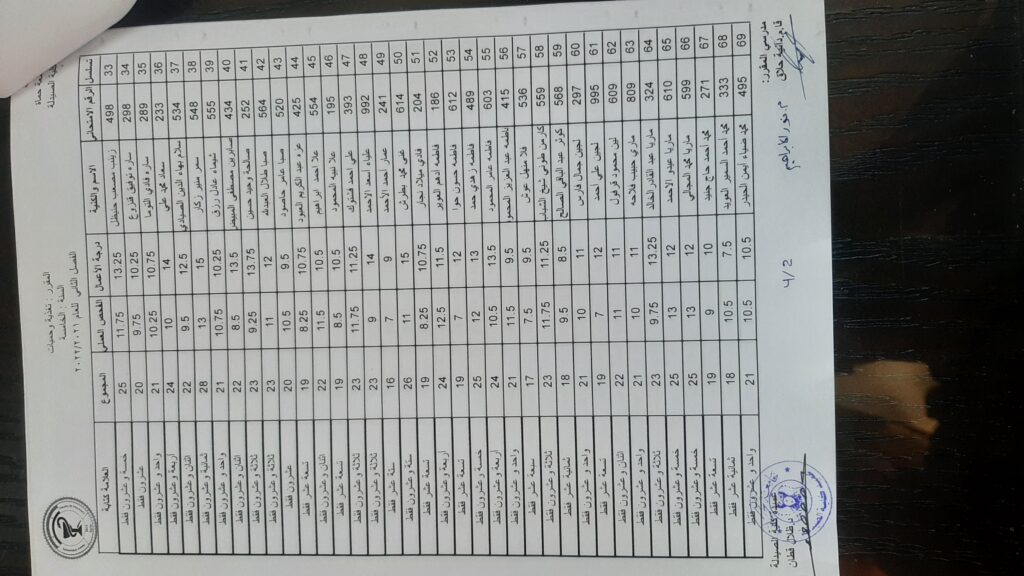 المقرر : تغذية وحميات
السنة : الخامسة
الفصل الثاني للعام ٢٠٢١/٢٠٢٢
تسلسل الرقم الامتحاني الاسم والكنية درجة الأعمال الفحص العملي المجموع العلامة كتابة
33 498 زينب مصعب حنيظل 13.25 11.75 25 خمسة و عشرون فقط
34 298 ساره توفيق قنزوع 10.25 9.75 20 عشرون فقط
35 289 ساره فادي التوما 10.75 10.25 21 واحد و عشرون فقط
36 233 سعاد محمد علي 14 10 24 أربعة و عشرون فقط
37 534 سلام بهاء الدين الصيادي 12.5 9.5 22 اثنان و عشرون فقط
38 548 سمر سمير زكار 15 13 28 ثمانية و عشرون فقط
39 555 شيماء عادل رزق 10.25 10.75 21 واحد و عشرون فقط
40 434 صابرين مصطفى المبيض 13.5 8.5 22 اثنان و عشرون فقط
41 252 صالحة وحيد حسين 13.75 9.25 23 ثلاثة و عشرون فقط
42 564 صبا طلال العبدالله 12 11 23 ثلاثة و عشرون فقط
43 520 صبا عامر حاصود 9.5 10.5 20 عشرون فقط
44 425 عزه عبد الكريم العبود 10.75 8.25 19 تسعة عشر فقط
45 554 علا احمد ابراهيم 10.5 11.5 22 اثنان و عشرون فقط
46 195 علا نبيه المحمود 10.5 8.5 19 تسعة عشر فقط
47 393 علي احمد فشتوك 11.25 11.75 23 ثلاثة و عشرون فقط
48 992 علياء اسعد الاحمد 14 9 23 ثلاثة و عشرون فقط
49 241 عمار احمد الأحمد 9 7 16 ستة عشر فقط
50 614 عمي محمد بطرش 15 11 26 ستة و عشرون فقط
51 204 فادي ميلاد نجار 10.75 8.25 19 تسعة عشر فقط
52 186 فاطمه ادهم العوير 11.5 12.5 24 أربعة و عشرون فقط
53 612 فاطمه حسون حوا 12 7 19 تسعة عشر فقط
54 489 فاطمه زهدي حمد 13 12 25 خمسة و عشرون فقط
55 603 فاطمه عامر المحمود 13.5 10.5 24 أربعة و عشرون فقط
56 415 فاطمه عبد العزيز المحمود 9.5 11.5 21 واحد و عشرون فقط
57 536 فلا سهيل عوش 9.5 7.5 17 سبعة عشر فقط
58 559 كارمن طوني شيخ الشباب 11.25 11.75 23 ثلاثة و عشرون فقط
59 568 كوثر عبد الباقي الصالح 8.5 9.5 18 ثمانية عشر فقط
60 297 لجين جمال فارس 11 10 21 واحد و عشرون فقط
61 995 لجين علي احمد 12 7 19 تسعة عشر فقط
62 609 لين محمود فرفول 11 11 22 اثنان و عشرون فقط
63 809 ماري حبيب فلاحه 11 10 21 واحد و عشرون فقط
64 324 ماريا عبد القادر الخالد 13.25 9.75 23 ثلاثة و عشرون فقط
65 610 ماريا عبدو الاحمد 12 13 25 خمسة و عشرون فقط
66 599 ماريا محمد المجالي 12 13 25 خمسة و عشرون فقط
67 271 محمد أحمد حاج جنيد 10 9 19 تسعة عشر فقط
68 333 محمد أحمد السمير العويد 7.5 10.5 18 ثمانية عشر فقط
69 495 محمد ضياء ايمن الحيدر 10.5 10.5 21 واحد و عشرون فقط
مدرسي المقرر:
م. حور الابراهيم
4/2
كلية الصيدلة